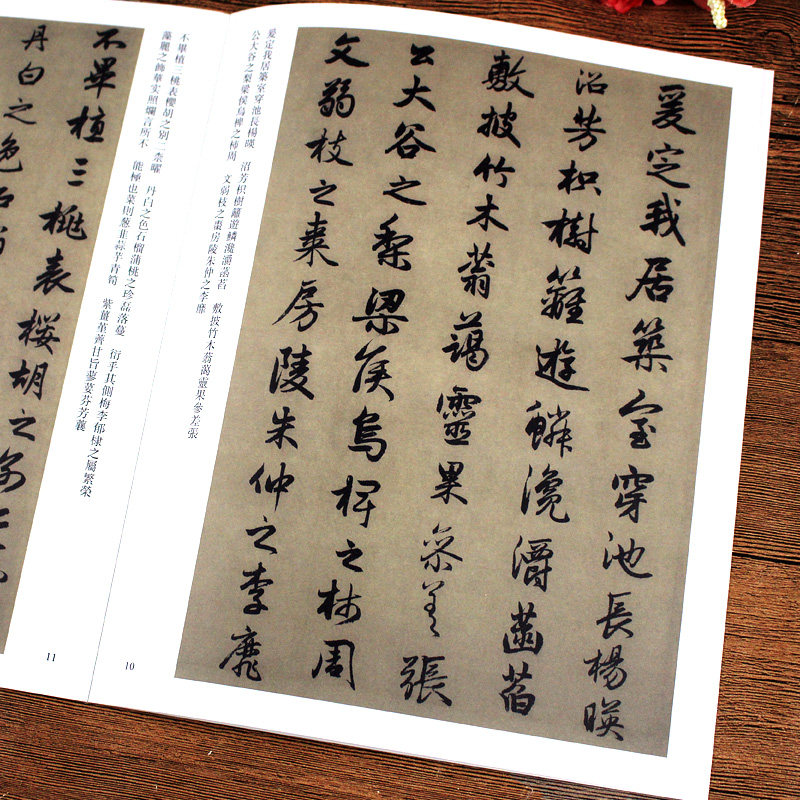 爰定我居築室穿池長楊暎
沼芳枳樹籬遊鱗瀺灂菡萏
敷披竹木蓊藹靈果參差張
公大谷之梨梁侯烏椑之柿周
文弱枝之棗房陵朱仲之李靡
爰定我居築室穿池長楊暎　沼芳枳樹籬遊鱗瀺灂菡萏　敷坡竹木蓊藹靈果參差張
公大谷之梨梁侯烏椑之柿周　文弱枝之棗房陵朱仲之李靡
10
不畢植三桃表櫻胡之別二柰曜　丹白之色石榴蒲桃之珍磊落蔓　衍乎其側梅李郁棣之屬繁榮
藻麗之飾華实照爛言所不　能極也菜則葱韭蒜芋青筍　紫薑堇薺甘旨蓼荽芬芳蘘
不畢植三桃表桜胡之別二
丹白之色石
11